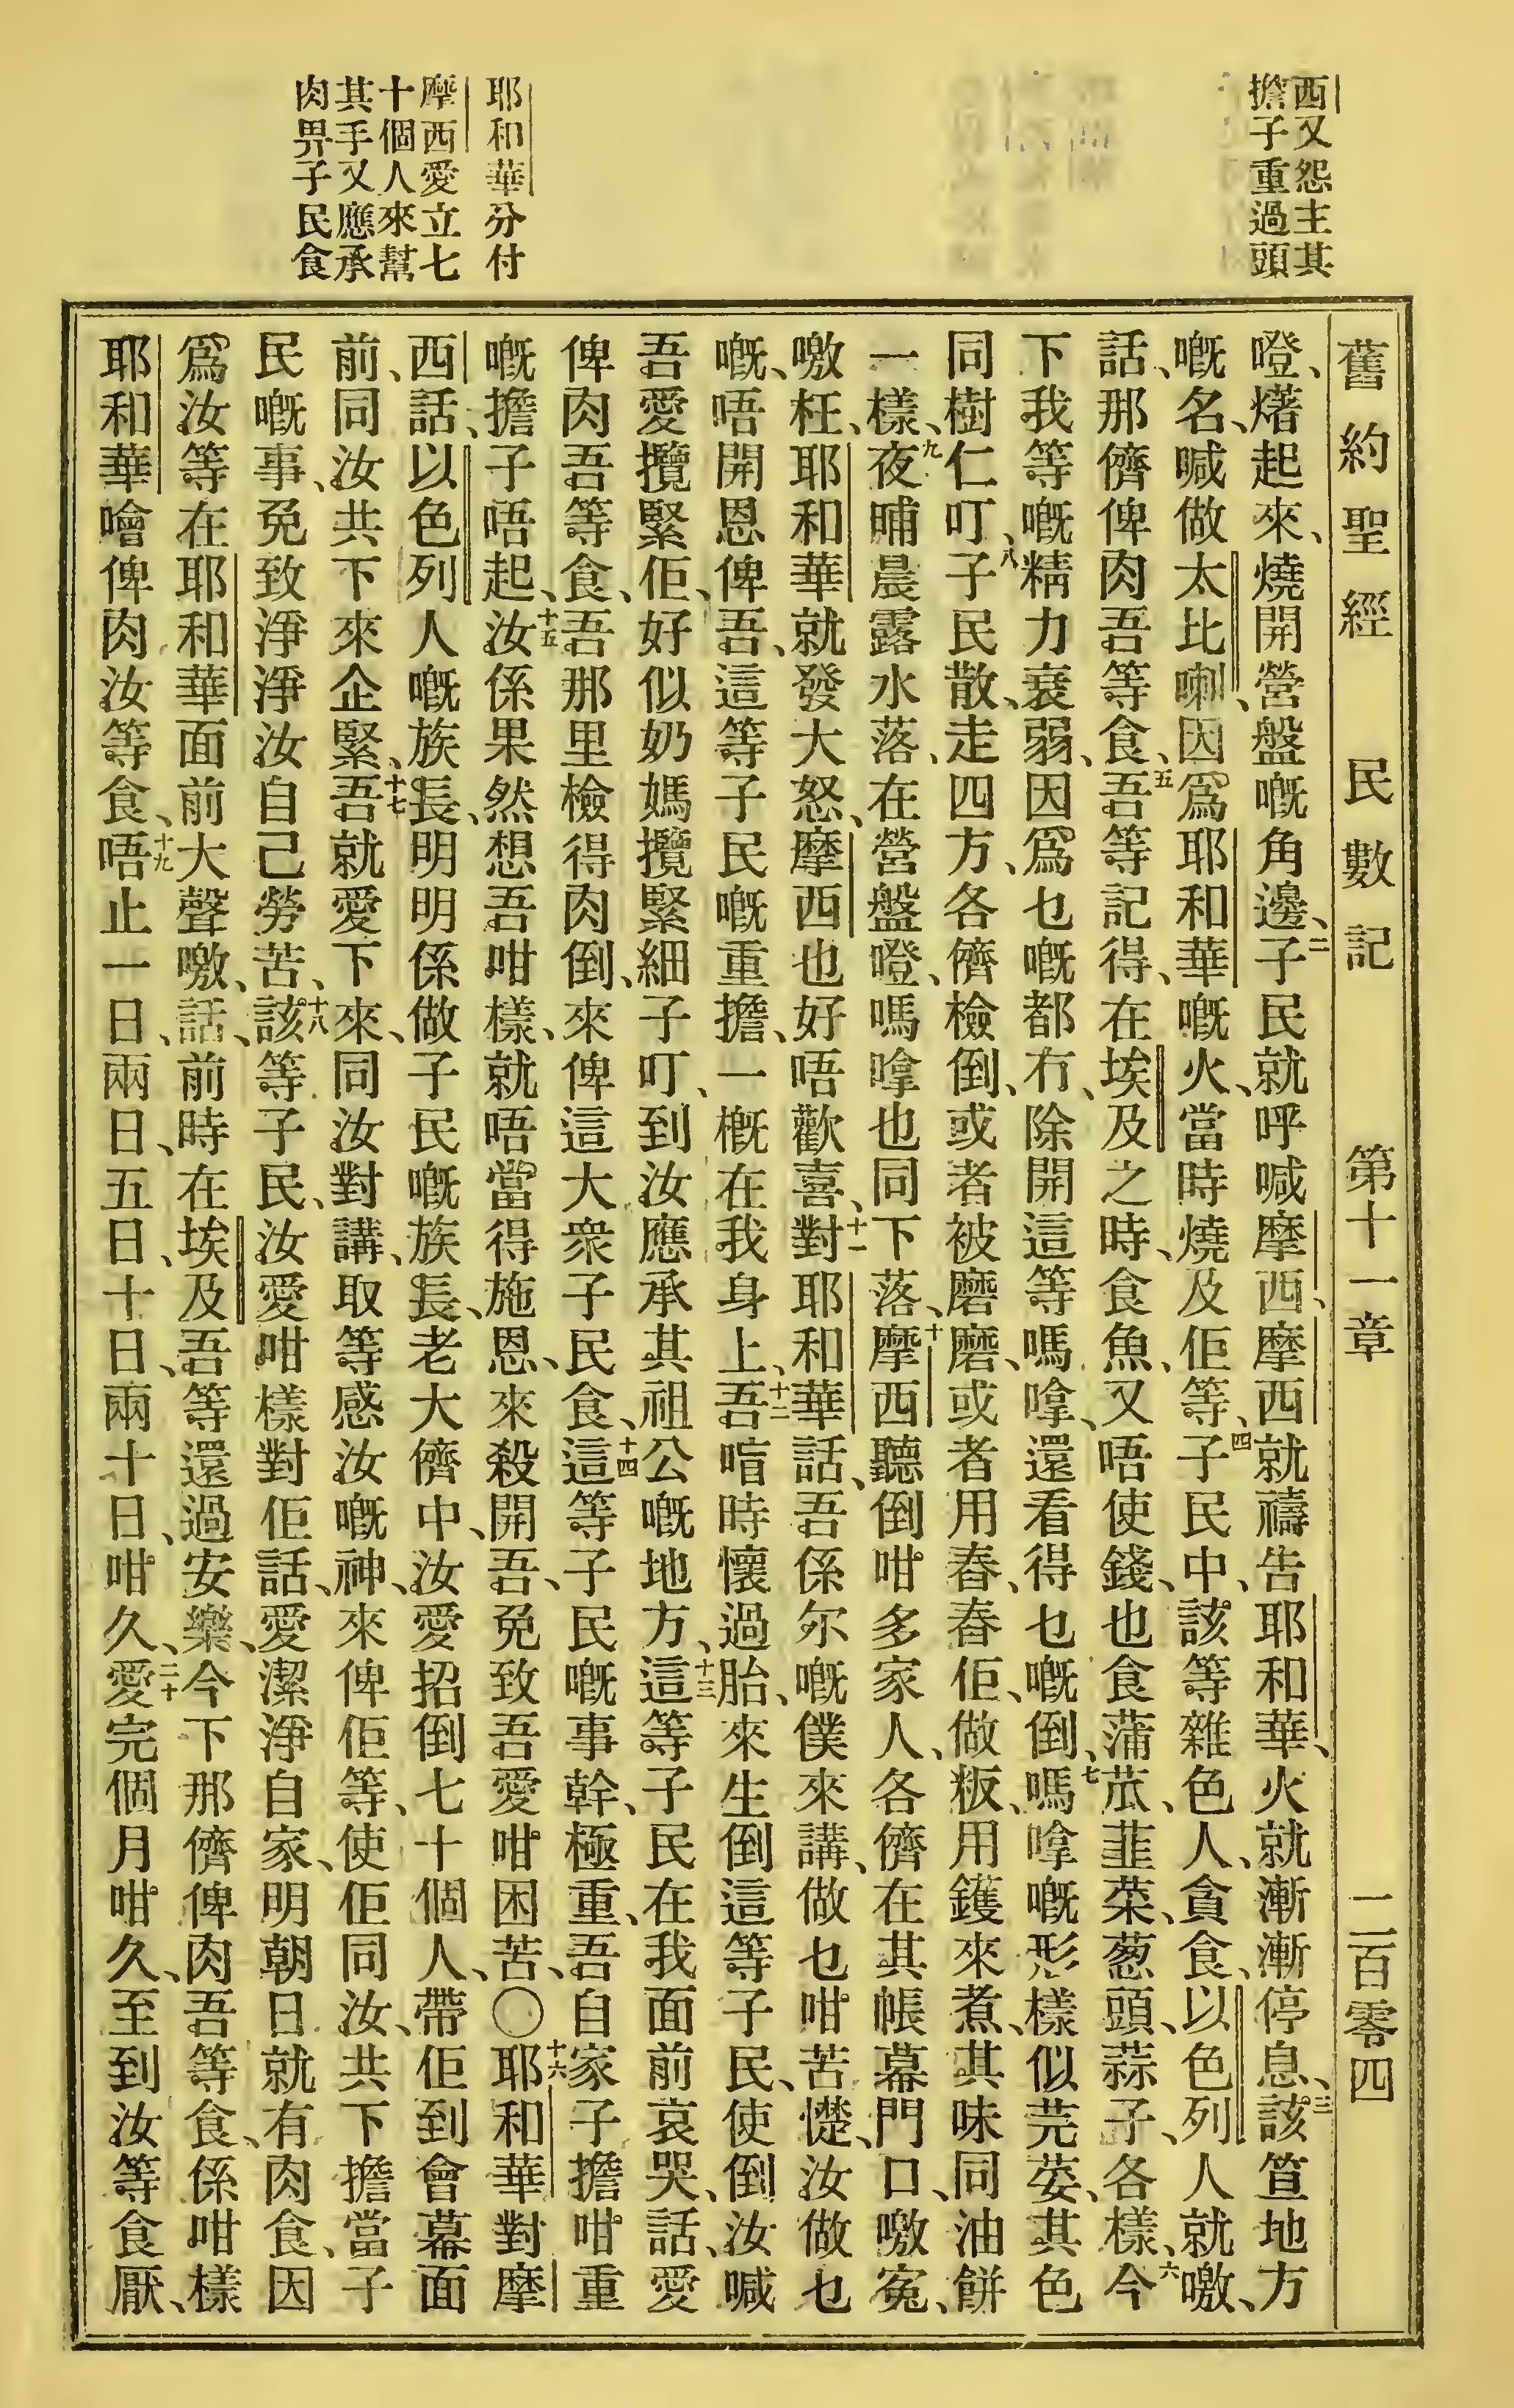 西又怨主其
擔子重過頭
耶和華分付
摩西愛立七
十個人來幫
其手又應承
肉畀子民食
舊約聖經　民數記　第十一章　二百零四
噔、㷮起來、燒開營盤嘅角邊、二子民就呼喊摩西、摩西就禱告耶和華、火就漸漸停息、三該笪地方
嘅名、喊做太比喇、因爲耶和華嘅火、當時燒及佢等、四子民中、該等雜色人、貪食、以色列人就噭、
話、那儕俾肉吾等食、五吾等記得、在埃及之時、食魚、又唔使錢、也食蒲苽、韮菜、葱頭、蒜子、各樣、六今
下我等嘅精力衰弱、因爲乜嘅都冇、除開這等嗎嗱、還看得乜嘅倒、七嗎嗱嘅形樣似芫荽、其色
同樹仁叮、八子民散、走四方、各儕檢倒、或者被磨磨、或者用舂、舂佢、做粄、用鑊來煮、其味同油餅
一樣、九夜晡晨露水落、在營盤噔、嗎嗱也同下落、十摩西聽倒咁多家人、各儕在其帳幕門口、噭寃、
噭枉、耶和華就發大怒、摩西也好唔歡喜、十一對耶和華話、吾係尔嘅僕來講、做乜咁苦憷、汝做乜
嘅、唔開恩俾吾、這等子民嘅重擔、一概在我身上、十二吾喑時懷過胎、來生倒這等子民、使倒汝喊
吾愛攬緊佢、好似奶媽攬緊細子叮、到汝應承其祖公嘅地方、十三這等子民在我面前哀哭、話、愛
俾肉吾等食、吾那里檢得肉倒、來俾這大衆子民食、十四這等子民嘅事幹、極重、吾自家子擔咁重
嘅擔子唔起、十五汝係果然想吾咁樣、就唔當得施恩、來殺開吾、免致吾愛咁困苦、○十六耶和華對摩
西話、以色列人嘅族長、明明係做子民嘅族長、老大儕中、汝愛招倒七十個人、帶佢到會幕面
前、同汝共下來企緊、十七吾就愛下來、同汝對講、取等感汝嘅神、來俾佢等、使佢同汝、共下擔當子
民嘅事、免致淨淨汝自己勞苦、十八該等子民、汝愛咁樣對佢話、愛潔淨自家、明朝日就有肉食、因
爲汝等在耶和華面前大聲噭、話、前時在埃及吾等還過安樂、今下那儕俾肉吾等食、係咁樣
耶和華噲俾肉汝等食、十九唔止一日、兩日、五日、十日、兩十日、咁久、二十愛完個月咁久、至到汝等食厭、